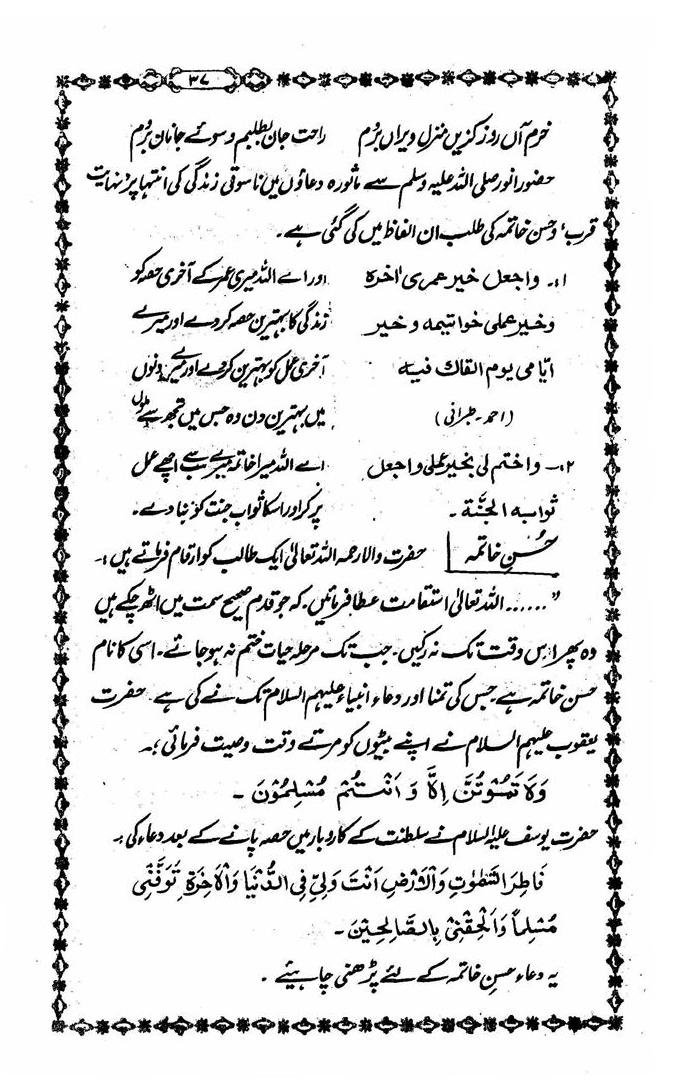 ۳۷
خرم آں روز کزیں منزل ویراں بروم راحت جان بطلبم و سوئے جاناں بروم
حضور انور صلی اللہ علیہ وسلم سے ماثورہ دعاؤں میں ناسوتی زندگی کی انتہا پر نہایت
قرب و حسن خاتمہ کی طلب ان الفاظ میں کی گئی ہے۔
۱۔ واجعل خیر عمری اٰخرہ اور اے اللہ میری عمر کے آخری حصہ کو
وخیر عملی خواتیمه وخیر زندگی کا بہترین حصہ کر دے اور میرے
ایّامی یوم القاك فیه آخری عمل کو بہترین کر دے اور میرے دنوں
(احمد۔ طبرانی) میں بہترین دن وہ جس میں تجھ سے ملوں
۲۔ واختم لی بخیر عملی واجعل اے اللہ میرا خاتمہ میرے سب سے اچھے عمل
ثوابه الجنَّة۔ پر کر اور اسکا ثواب جنت کو بنا دے۔
حُسنِ خاتمہ حضرت والا رحمہ اللہ تعالیٰ ایک طالب کو ارقام فرماتے ہیں :۔
"...... اللہ تعالیٰ استقامت عطا فرمائیں۔ کہ جو قدم صحیح سمت میں اٹھ چکے ہیں
وہ پھر اس وقت تک نہ رکیں۔ جب تک مرحلہ حیات ختم نہ ہو جائے۔ اسی کا نام
حسن خاتمہ ہے۔ جس کی تمنا اور دعاء انبیاء علیہم السلام تک نے کی ہے حضرت
یعقوب علیہم السلام نے اپنے بیٹوں کو مرتے وقت وصیت فرمائی :۔
وَلَا تَمُوْتُنَّ اِلَّا وَ اَنْتُمْ مُسْلِمُوْنَ ۔
حضرت یوسف علیہ السلام نے سلطنت کے کاروبار میں حصہ پانے کے بعد دعاء کی :۔
فَاطِرَ السَّمٰوٰتِ وَالْاَرْضِ اَنْتَ وَلِیّٖ فِی الدُّنْیَا وَالْاٰخِرَةِ تَوَفَّنِیْ
مُسْلِماً وَاَلْحِقْنِیْ بِالصَّالِحِیْنَ۔
یہ دعاء حسن خاتمہ کے لئے پڑھنی چاہیئے ۔